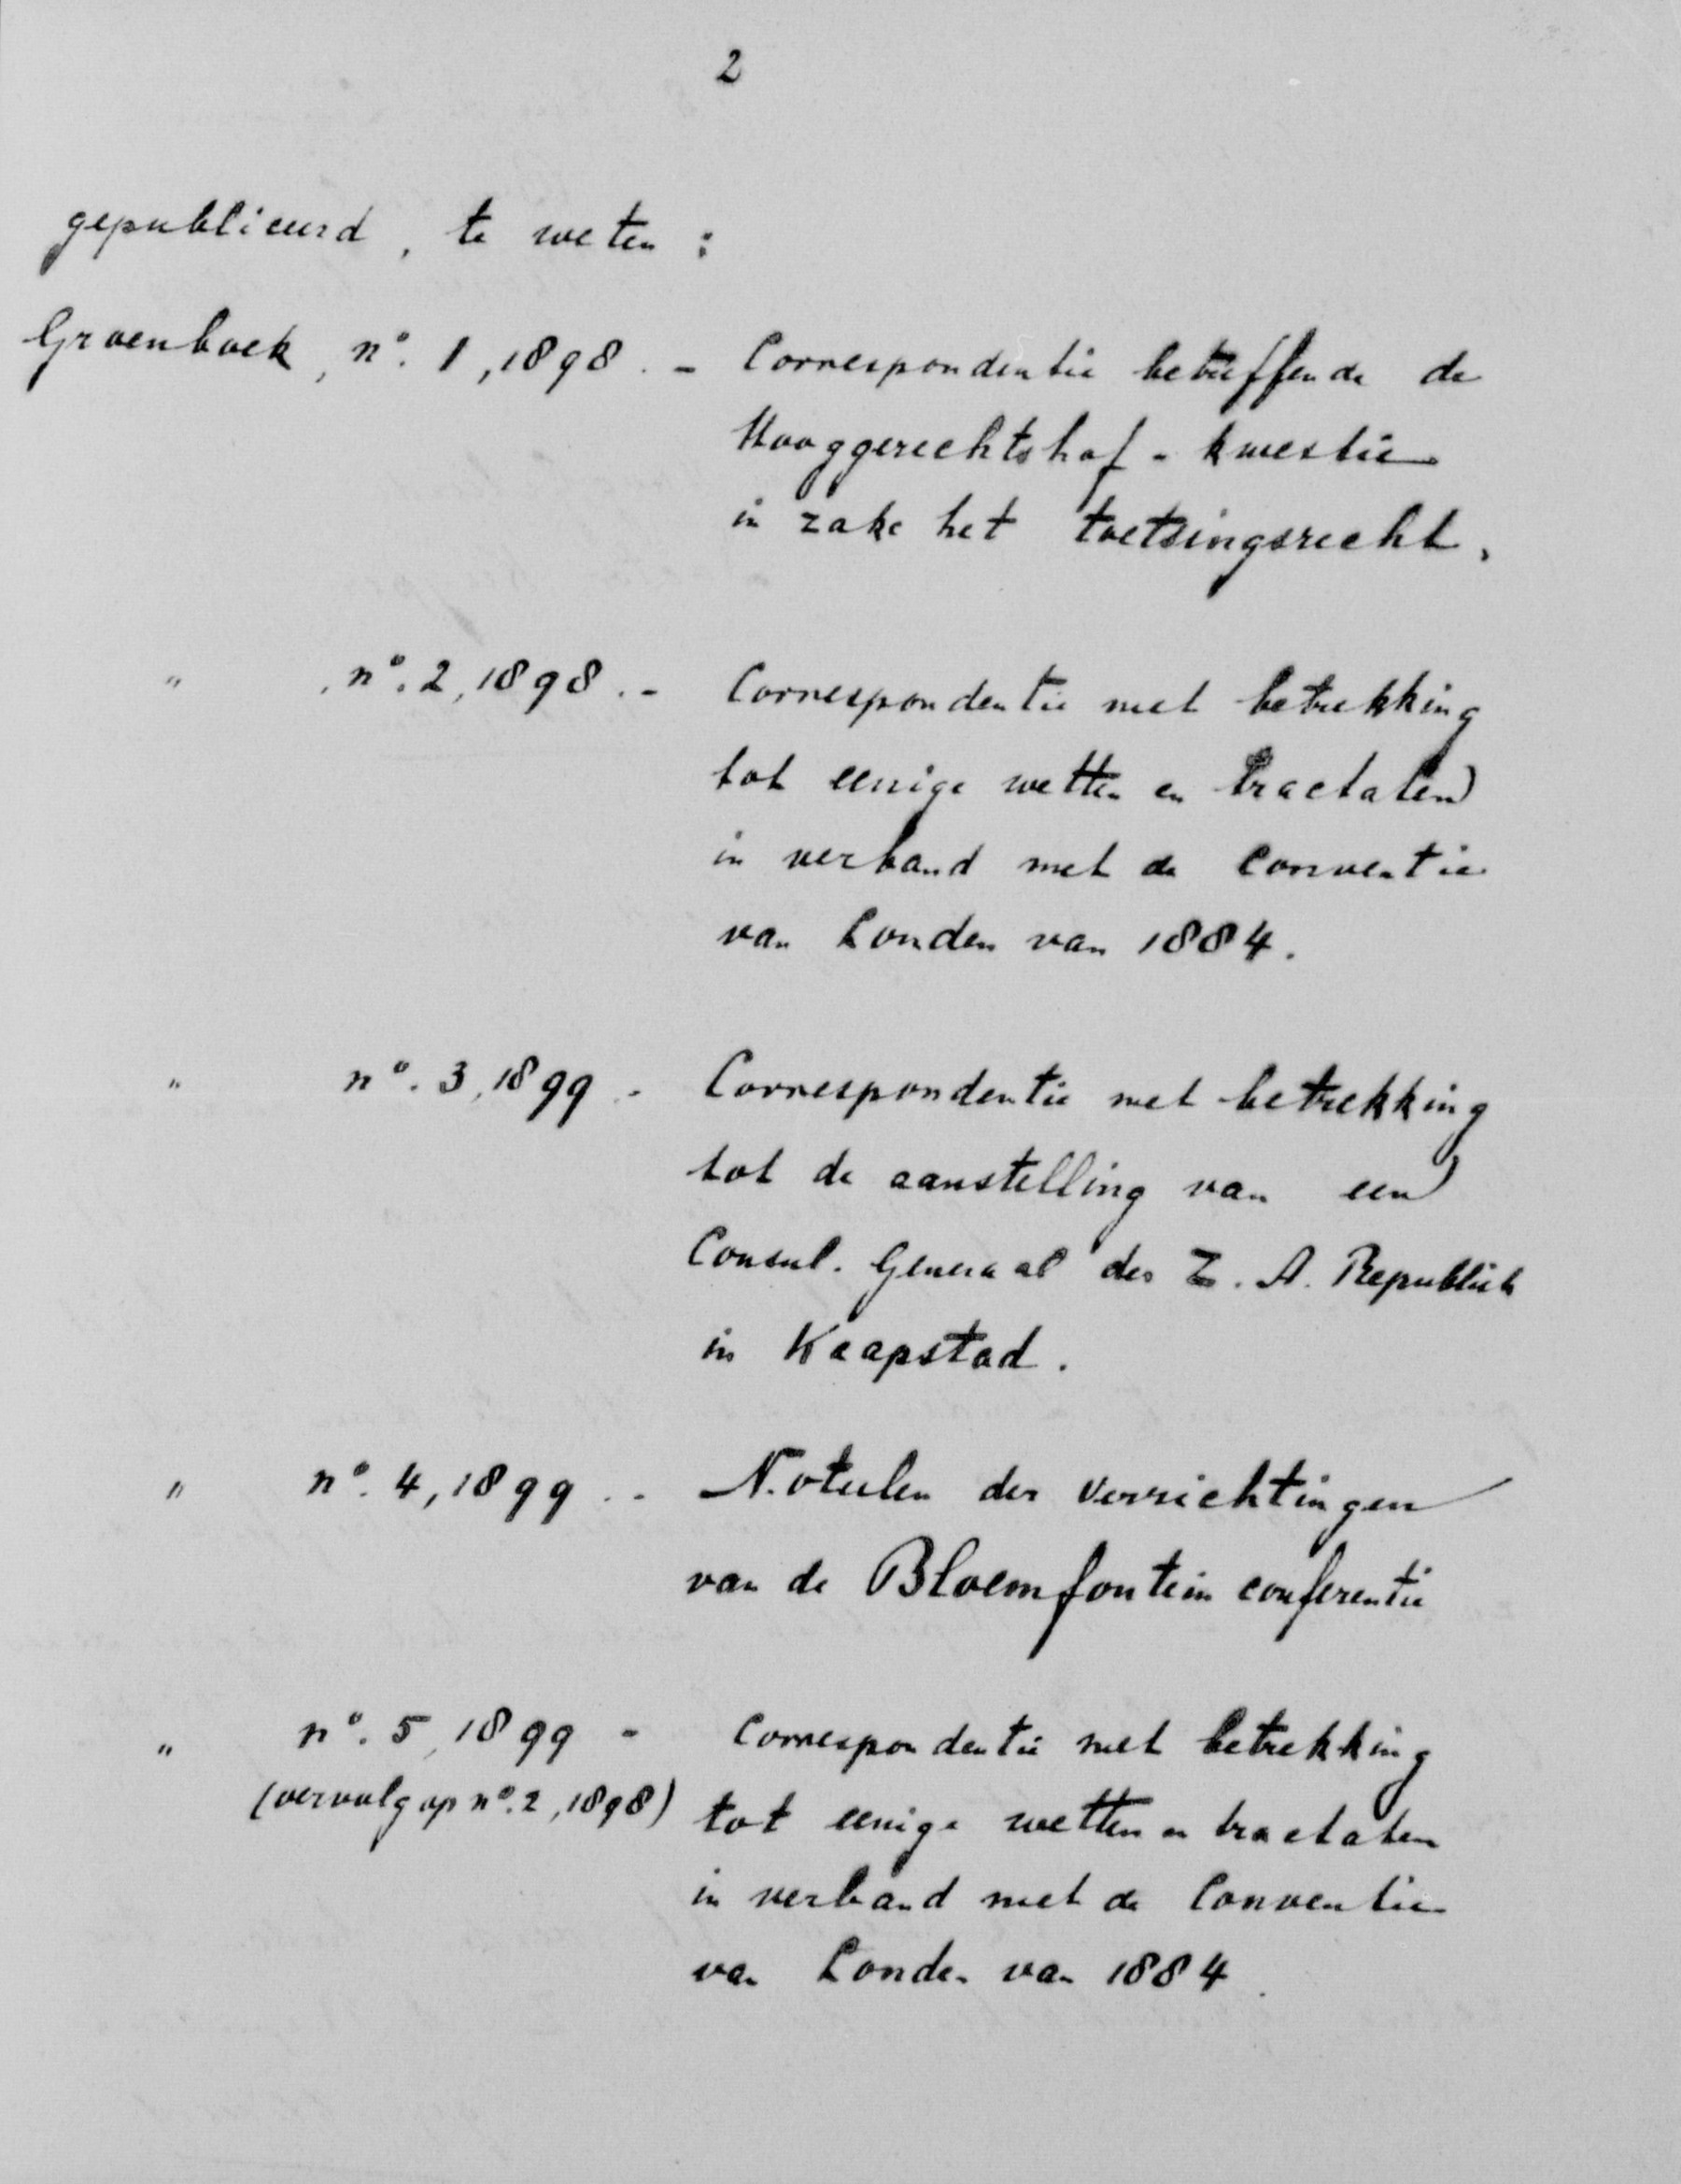 2
gepubliceerd, te weten:
Groenboek, no. 1, 1898. - Correspondentie betreffende de
Hooggerechtshof-kwestie
in zake het toetsingsrecht.
" , no. 2, 1898. - Correspondentie met betrekking
tot eenige wetten en tractaten
in verband met de Conventie
van Londen van 1884.
" no. 3, 1899. - Correspondentie met betrekking
tot de aanstelling van een
Consul-Generaal der Z. A. Republiek
in Kaapstad.
" no. 4, 1899. - Notulen der verrichtingen
van de Bloemfontein conferentie
" no. 5, 1899 - Correspondentie met betrekking
(vervolg op no. 2, 1898) tot eenige wetten en tractaten
in verband met de Conventie
van Londen van 1884.